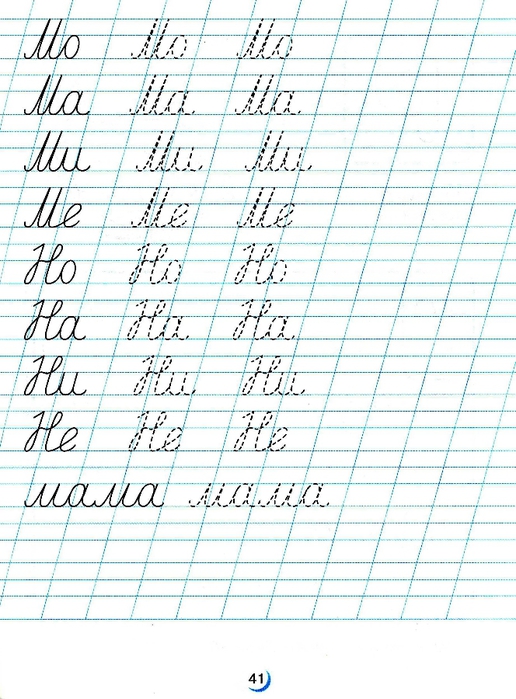 Мо Мо Мо
Ма Ма Ма
Ми Ми Ми
Ме Ме Ме
Но Но Но
На На На
Ни Ни Ни
Не Не Не
мама мама
41